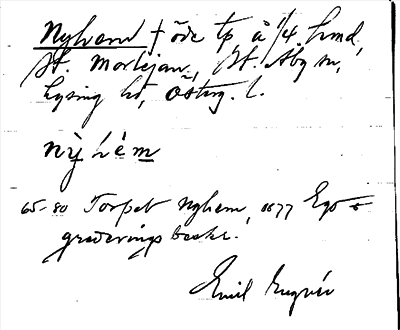 Nyhem † öde tp å 1/4 hmd,
St. Mortejan, St. Åby sn,
Lysing hd, Östg. l.
nỳ hè m
65-80 Torpet Nyhem, 1877 Ego o
graderings beskr.
Emil